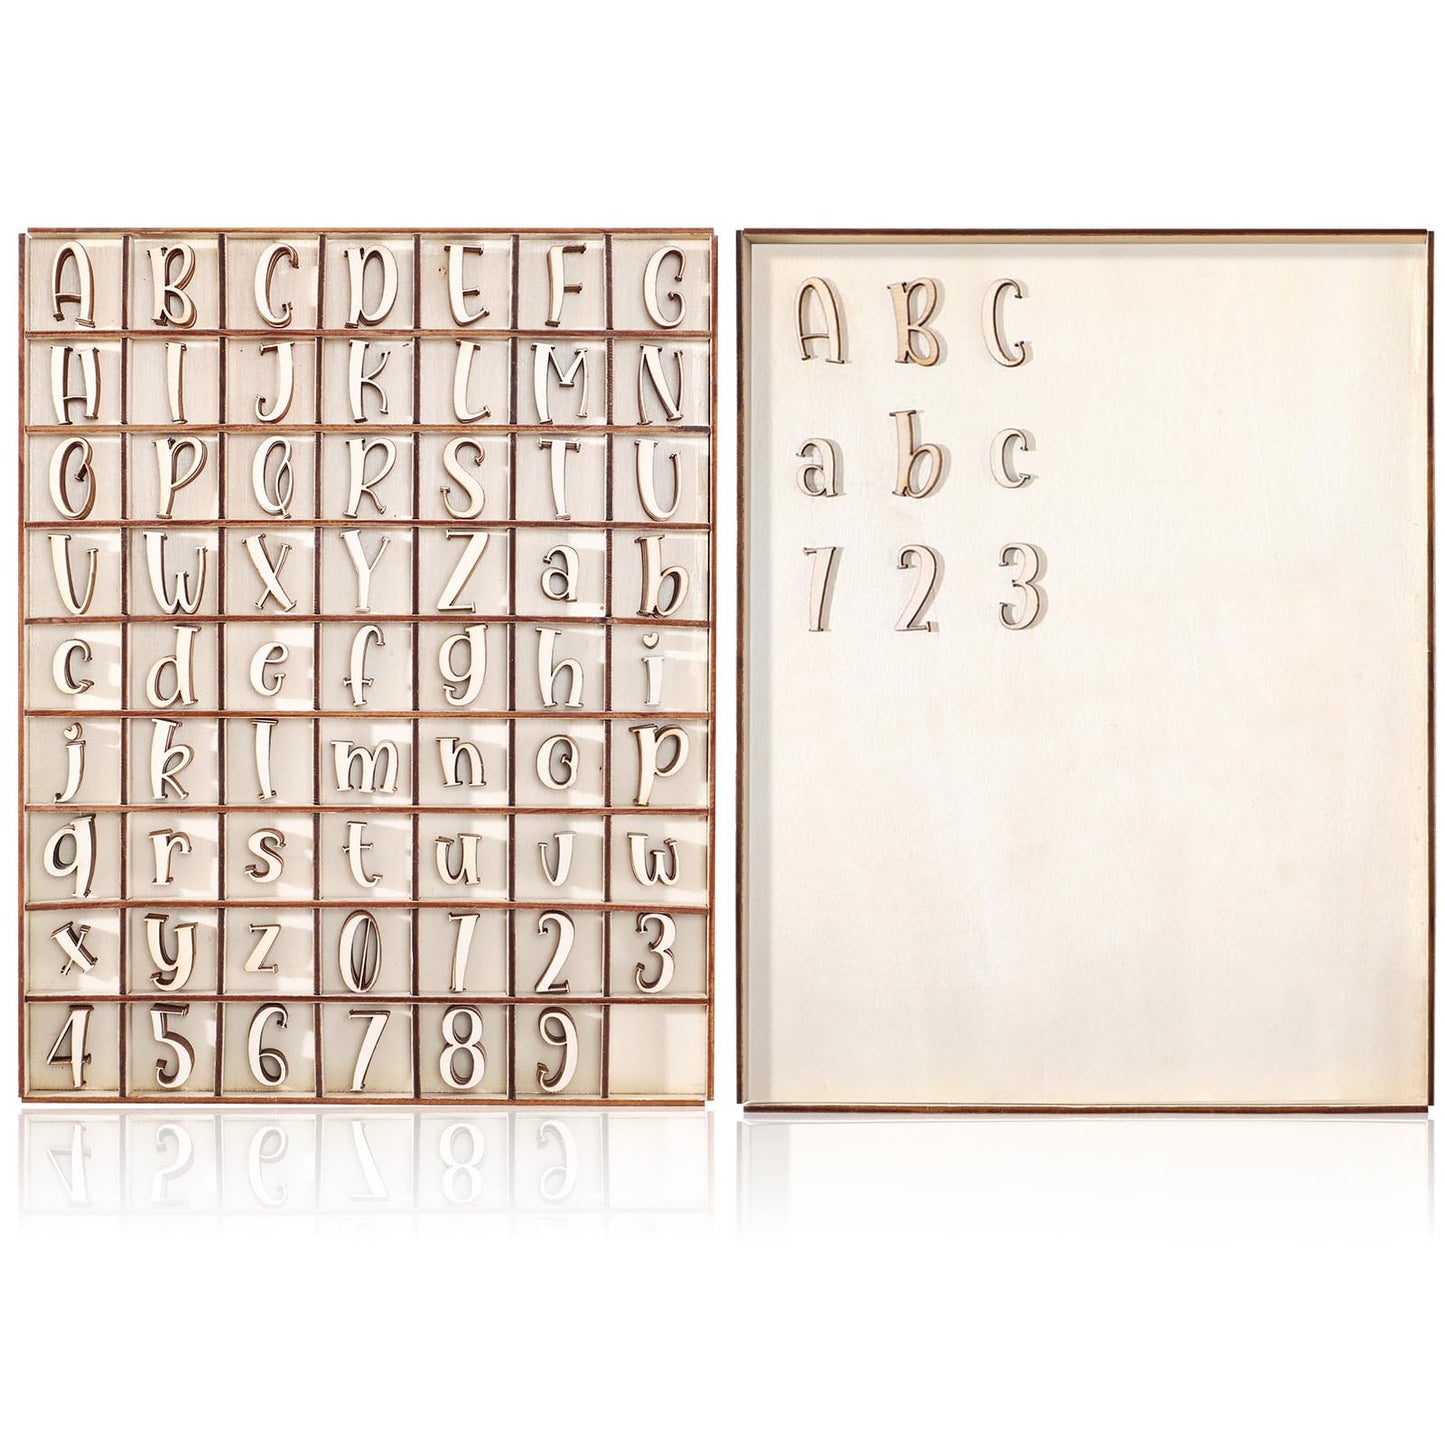 A B C D E F G
H I J K L M N
O P Q R S T U
V W X Y Z a b
c d e f g h i
j k l m n o p
q r s t u v w
x y z 0 1 2 3
4 5 6 7 8 9
A B C
a b c
1 2 3